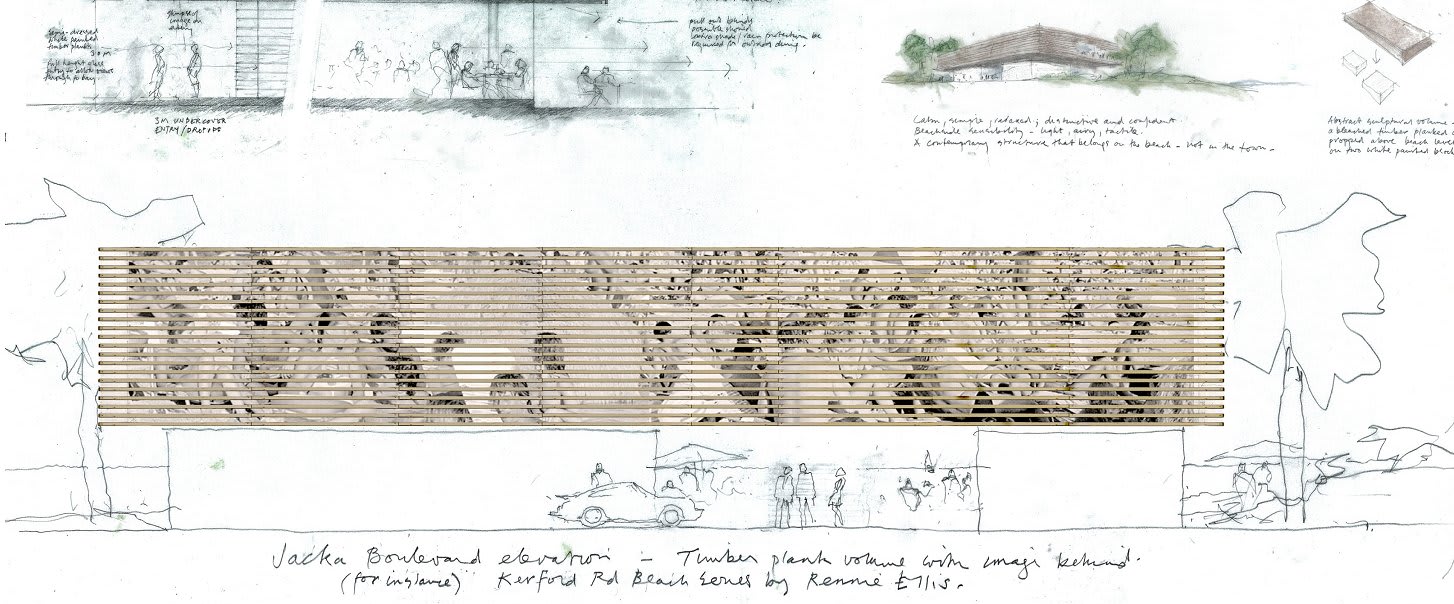 glimpse of
image on
Semi-dressed
white painted
timber planks
3.0 M
full height glass
entry to allow views
through to bay.
3M UNDERCOVER
ENTRY / DROPOFF
pull out blinds
possible should
extra shade / rain protection be
required for outdoor dining.
Calm, simple, relaxed; distinctive and confident.
Beachside sensibility - light, airy, tactile.
A contemporary structure that belongs on the beach - not in the town -
Abstract sculptural volume -
a bleached timber planked
propped above beach level
on two white painted block
Jacka Boulevard elevation - Timber plank volume with image behind.
(for instance) Kerford Rd Beach Series by Rennie Ellis.